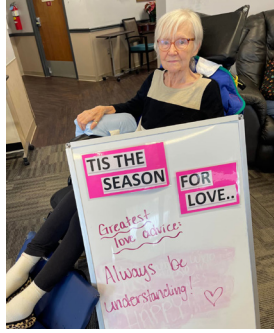 TIS THE
SEASON
FOR
LOVE..
Greatest
love advice:
Always be
understanding!